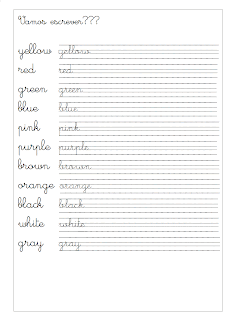 Vamos escrever???
yellow yellow
red red
green green
blue blue
pink pink
purple purple
brown brown
orange orange
black black
white white
gray gray